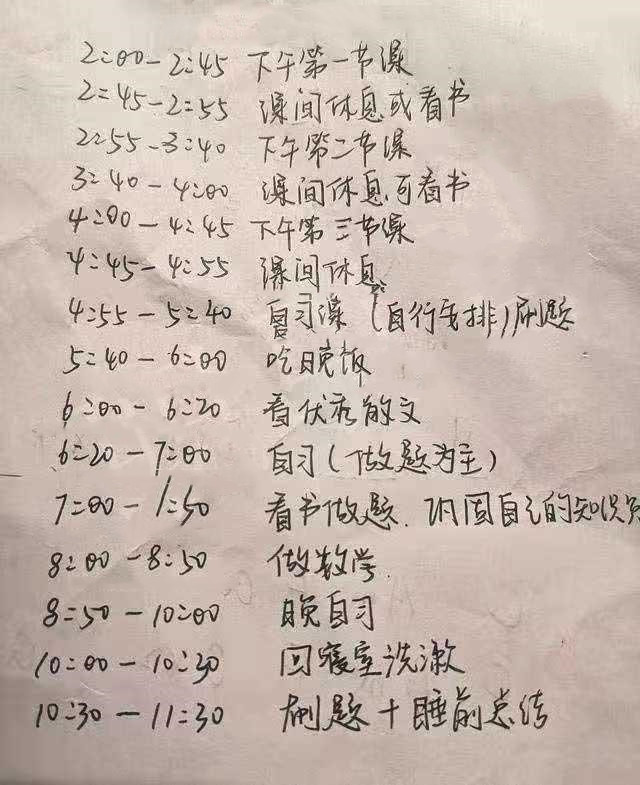 2:00-2:45 下午第一节课
2:45-2:55 课间休息或看书
2:55-3:40 下午第二节课
3:40-4:00 课间休息可看书
4:00-4:45 下午第三节课
4:45-4:55 课间休息
4:55-5:40 自习课(自行安排)刷题
5:40-6:00 吃晚饭
6:00-6:20 看优秀散文
6:20-7:00 自习(做题为主)
7:00-7:50 看书做题、巩固自己的知识
8:00-8:50 做数学
8:50-10:00 晚自习
10:00-10:30 回寝室洗漱
10:30-11:30 刷题+睡前总结